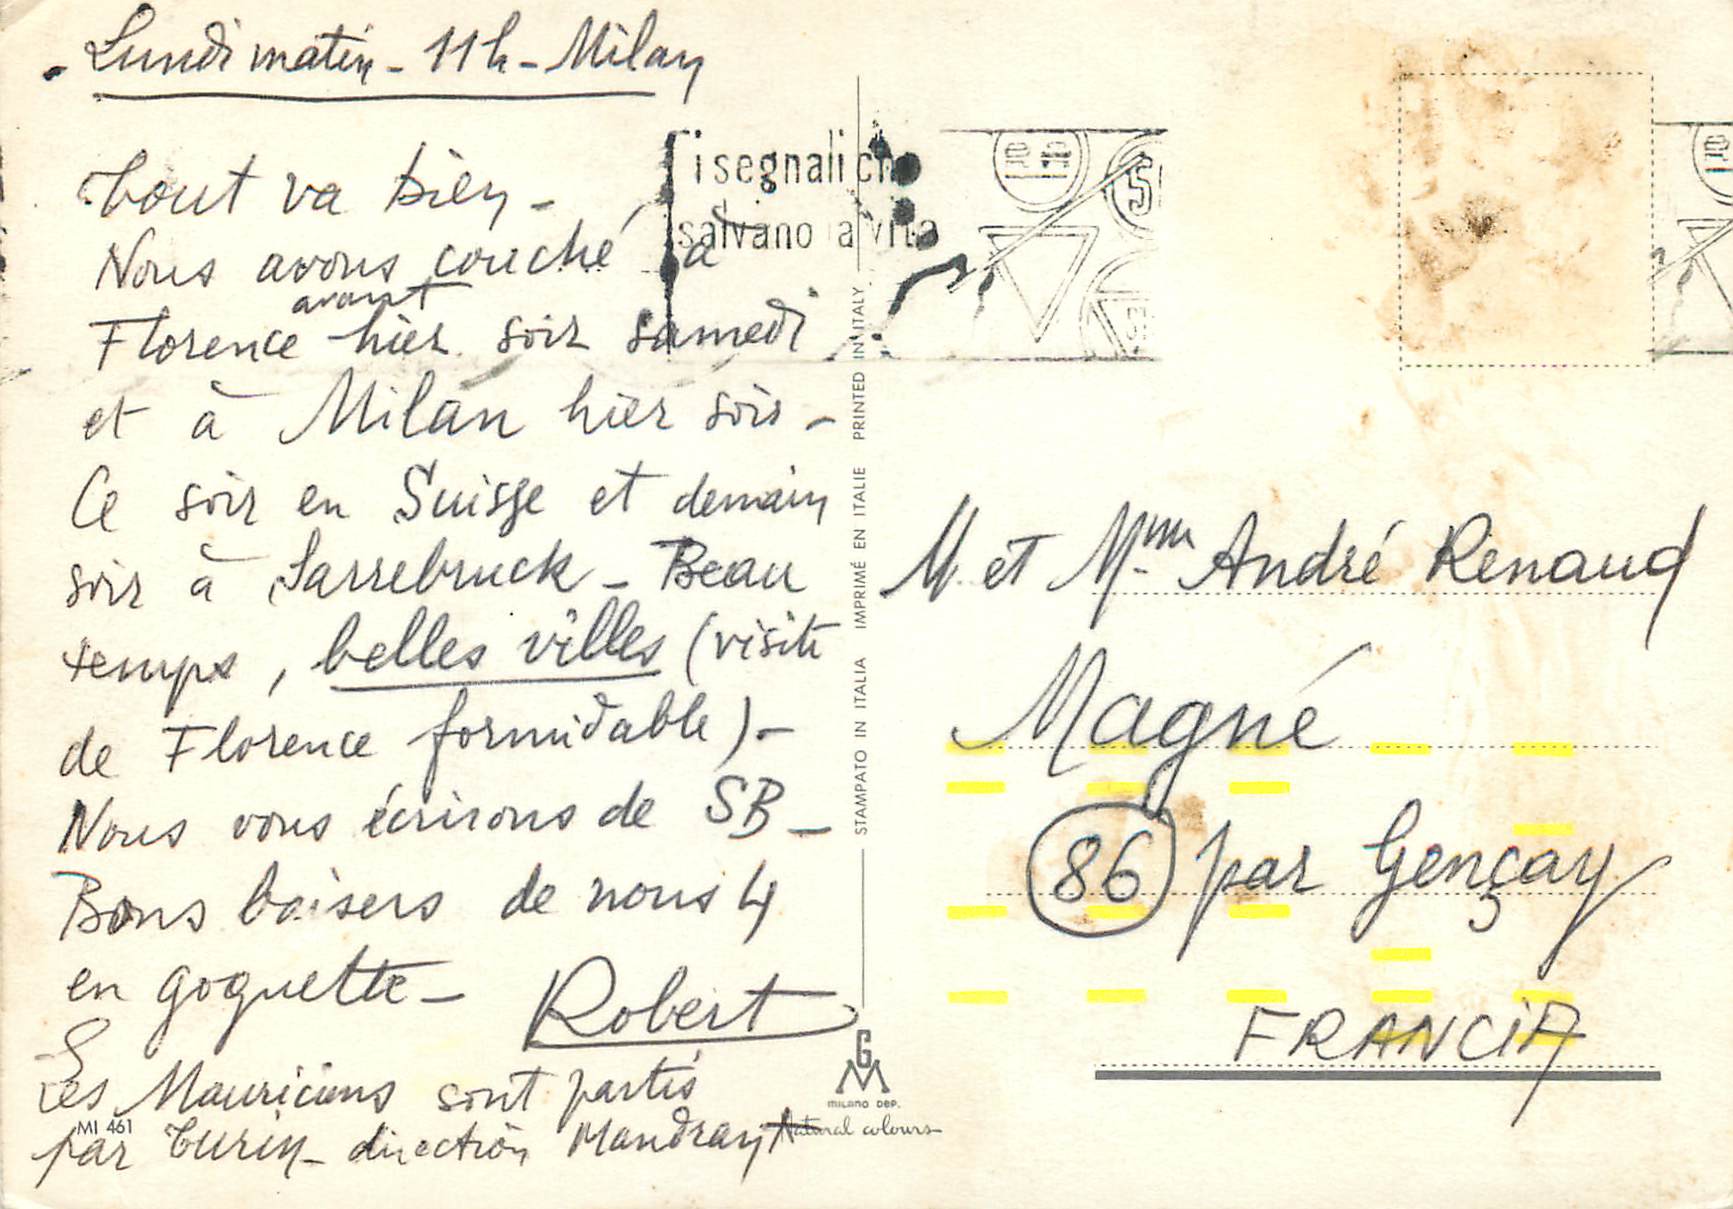 Lundi matin - 11h - Milan
Tout va bien -
Nous avons couché à
Florence avant hier soir samedi
et à Milan hier soir -
Ce soir en Suisse et demain
soir à Sarrebruck - Beau
temps, belles villes (visite
de Florence formidable) -
Nous vous écrirons de SB -
Bons baisers de nous 4
en goguette -
Robert
Les Mauriciens sont partis
par Turin - direction
MI 461
i segnali che
salvano la vita
STAMPATO IN ITALIA IMPRIMÉ EN ITALIE PRINTED IN ITALY
M. et Mme André Renaud
Magné
86 par Gençay
FRANCIA
GM
MILANO DEP.
Natural colours